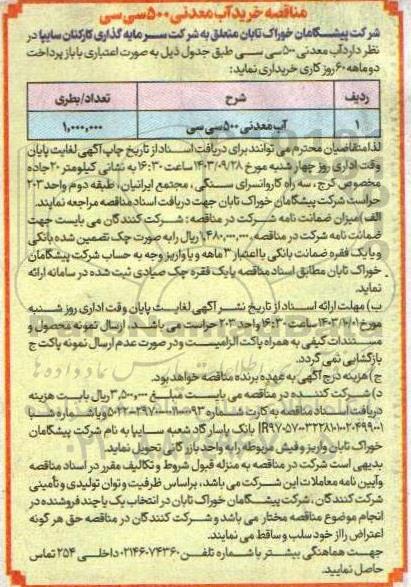 مناقصه خرید آب معدنی ۵۰۰ سی سی
شرکت پیشگامان خوراک تابان متعلق به شرکت سرمایه گذاری کارکنان سایپا در
نظر دارد آب معدنی ۵۰۰ سی سی طبق جدول ذیل به صورت اعتباری با باز پرداخت
دو ماهه ۶۰ روز کاری خریداری نماید:
ردیف شرح تعداد/بطری
۱ آب معدنی ۵۰۰ سی سی ۱,۰۰۰,۰۰۰
لذا متقاضیان محترم می توانند برای دریافت اسناد از تاریخ چاپ آگهی لغایت پایان
وقت اداری روز چهار شنبه مورخ ۱۴۰۳/۰۹/۲۸ ساعت ۱۶:۳۰ به نشانی کیلومتر ۲۰ جاده
مخصوص کرج، سه راه کاروانسرای سنگی، مجتمع ایرانیان، طبقه دوم واحد ۲۰۳
حراست شرکت پیشگامان خوراک تابان جهت دریافت اسناد مناقصه مراجعه نمایند.
الف) میزان ضمانت نامه شرکت در مناقصه: شرکت کنندگان می بایست جهت
ضمانت نامه شرکت در مناقصه ۱,۴۸۰,۰۰۰,۰۰۰ ریال را به صورت چک تضمین شده بانکی
و یا یک فقره ضمانت بانکی با اعتبار ۳ ماهه و یا واریز وجه به حساب شرکت پیشگامان
خوراک تابان مطابق اسناد مناقصه یا یک فقره چک صیادی ثبت شده در سامانه ارائه
نماید.
ب) مهلت ارائه اسناد از تاریخ نشر آگهی لغایت پایان وقت اداری روز شنبه
مورخ ۱۴۰۳/۱۰/۰۱ ساعت ۱۶:۳۰ واحد ۲۰۳ حراست می باشد. ارسال نمونه محصول و
مستندات کیفی به همراه پاکت الزامیست و در صورت عدم ارسال نمونه پاکت ج
بازگشایی نمی گردد.
ج) هزینه درج آگهی به عهده برنده مناقصه خواهد بود.
د) شرکت کننده در مناقصه می بایست مبلغ ۳,۵۰۰,۰۰۰ ریال بابت هزینه
دریافت اسناد مناقصه به کارت شماره و یا شماره شبا
بانک پاسارگاد شعبه سایپا به نام شرکت پیشگامان
خوراک تابان واریز و فیش مربوطه را به واحد بازرگانی تحویل نماید.
بدیهی است شرکت در مناقصه به منزله قبول شروط و تکالیف مقرر در اسناد مناقصه
و آیین نامه معاملات این شرکت می باشد، براساس ظرفیت و توان تولیدی و تأمینی
شرکت کنندگان، شرکت پیشگامان خوراک تابان در انتخاب یک یا چند فروشنده در
انجام موضوع مناقصه مختار می باشد و شرکت کنندگان در مناقصه حق هر گونه
اعتراض را از خود سلب و ساقط می نمایند.
جهت هماهنگی بیشتر با شماره تلفن ۰۲۱۴۶۰۷۴۳۶۰ داخلی ۲۵۴ تماس
حاصل نمایید.